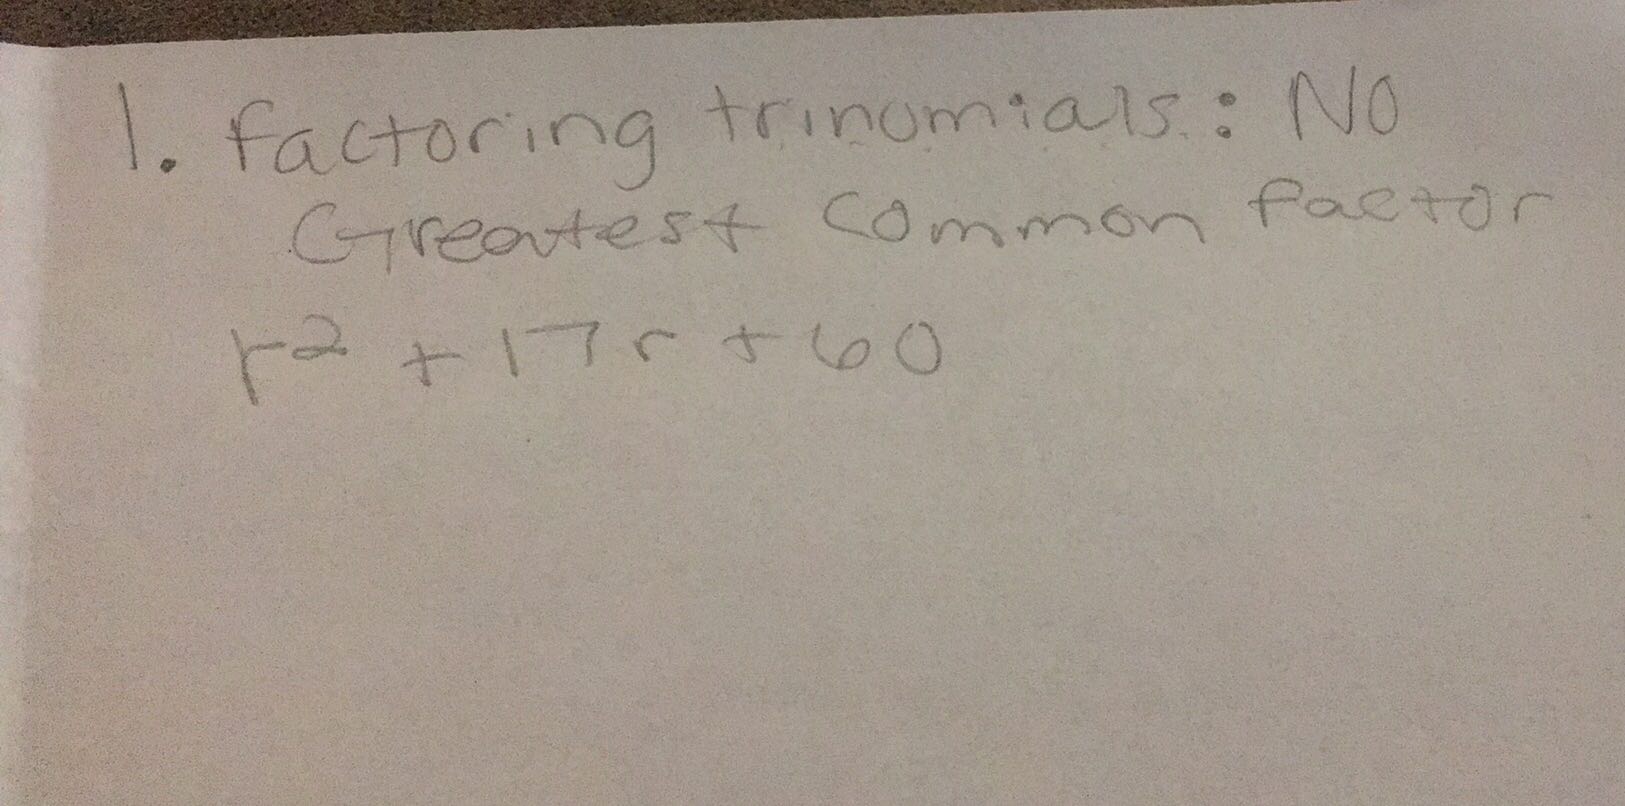 1. factoring trinomials: No
Greatest Common factor
r² + 17r + 60